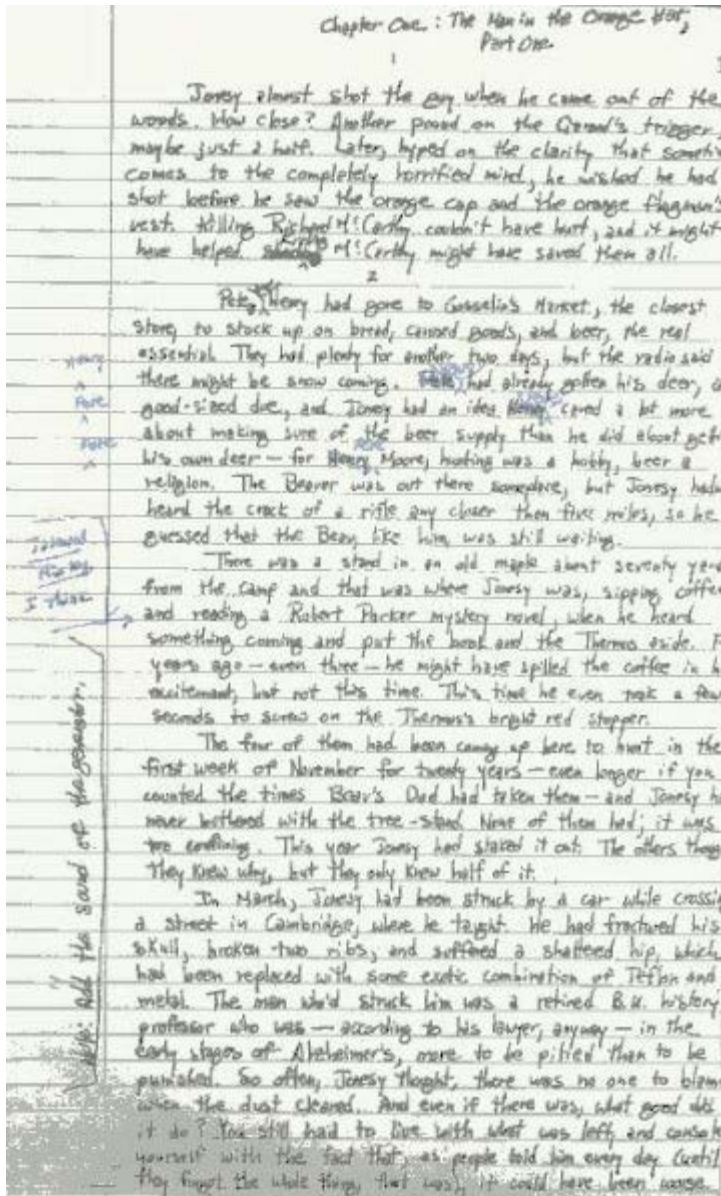 Chapter One: The Man in the Orange Hat,
Part One
1
Jonesy almost shot the guy when he came out of the
woods. How close? Another pound on the Garand's trigger,
maybe just a half. Later, hyped on the clarity that someti
comes to the completely horrified mind, he wished he had
shot before he saw the orange cap and the orange flagman's
vest. Killing Richard McCarthy couldn't have hurt, and it might
have helped. McCarthy might have saved them all.
2
Pete Henry had gone to Gosselin's Market, the closest
store, to stock up on bread, canned goods, and beer, the real
essential. They had plenty for another two days, but the radio said
there might be snow coming. had already gotten his deer, a
good-sized doe, and Jonesy had an idea cared a bit more
about making sure of the beer supply than he did about gett
his own deer — for Pete Moore, hunting was a hobby, beer a
religion. The Beaver was out there someplace, but Jonesy hadn
heard the crack of a rifle any closer than five miles, so he
guessed that the Beav, like him, was still waiting.
There was a stand in an old maple about seventy yard
from the camp and that was where Jonesy was, sipping coffee
and reading a Robert Parker mystery novel, when he heard
something coming and put the book and the Thermos aside. F
years ago — even three — he might have spilled the coffee in h
excitement, but not this time. This time he even took a few
seconds to screw on the Thermos's bright red stopper.
The four of them had been coming up here to hunt in the
first week of November for twenty years — even longer if you
counted the times Beav's Dad had taken them — and Jonesy h
never bothered with the tree-stand. None of them had; it was
too confining. This year Jonesy had staked it out. The others thoug
they knew why, but they only knew half of it.
In March, Jonesy had been struck by a car while crossin
a street in Cambridge, where he taught. He had fractured his
skull, broken two ribs, and suffered a shattered hip, which
had been replaced with some exotic combination of Teflon and
metal. The man who'd struck him was a retired B.U. history
professor who was — according to his lawyer, anyway — in the
early stages of Alzheimer's, more to be pitied than to be
punished. So often, Jonesy thought, there was no one to blame
when the dust cleared. And even if there was, what good did
it do? You still had to live with what was left, and console
yourself with the fact that, as people told him every day (until
they forgot the whole thing, that was), it could have been worse.
Henry
Pete
Pete
I think
Add the sound of the generator.